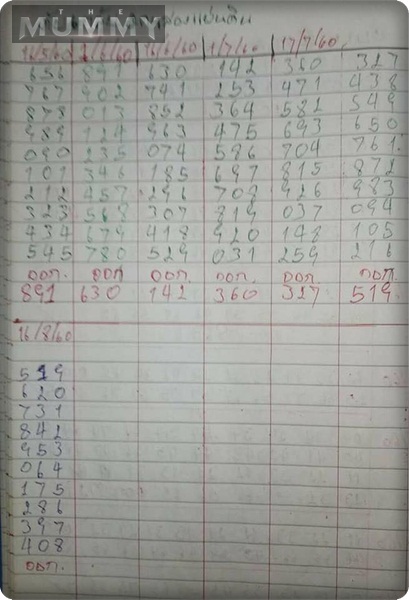 THE
MUMMY
16/5/60 2/6/60 16/6/60 1/7/60 17/7/60
656 891 630 142 360 327
767 902 741 253 471 438
878 013 852 364 582 549
989 124 963 475 693 650
090 235 074 586 704 761.
101 346 185 697 815 872
212 457 296 708 926 983
323 568 307 819 037 094
434 679 418 920 148 105
545 780 529 031 259 216
ออก. ออก ออก. ออก. ออก. ออก.
891 630 142 360 327 519
16/8/60
519
620
731
842
953
064
175
286
397
408
ออก.